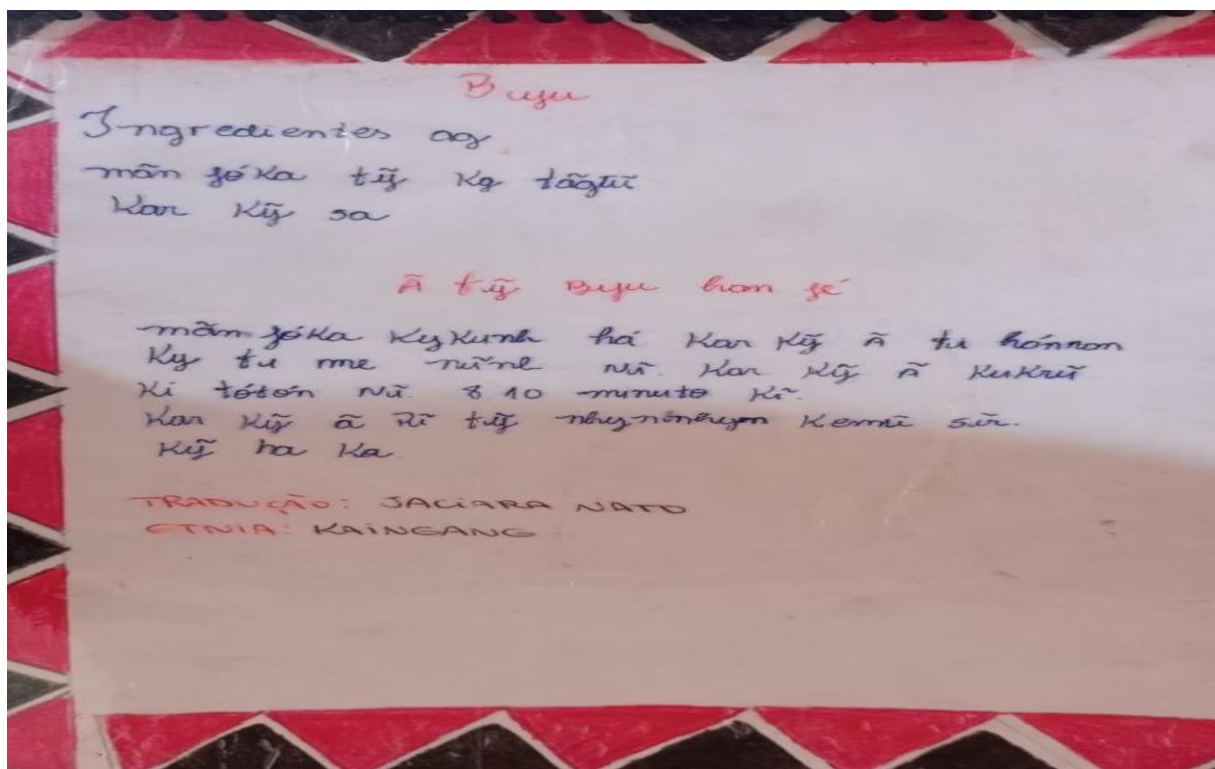 Biju
Ingredientes ag
mãn jóka tỹ Kg tãgtũ
Kar Kỹ sa
Ã tỹ Biju han jé
mãn jóka Kykunh há Kar Kỹ Ã tu hónnon
Ky tu me nĩnl nĩ. Kar Kỹ ã Kukrũ
Ki tótón nĩ 8 10 minuto Kĩ.
Kar Kỹ ã Rĩ tỹ Kemũ sĩr.
Kỹ ha Ka.
TRADUÇÃO: JACIARA NATO
ETNIA: KAINGANG